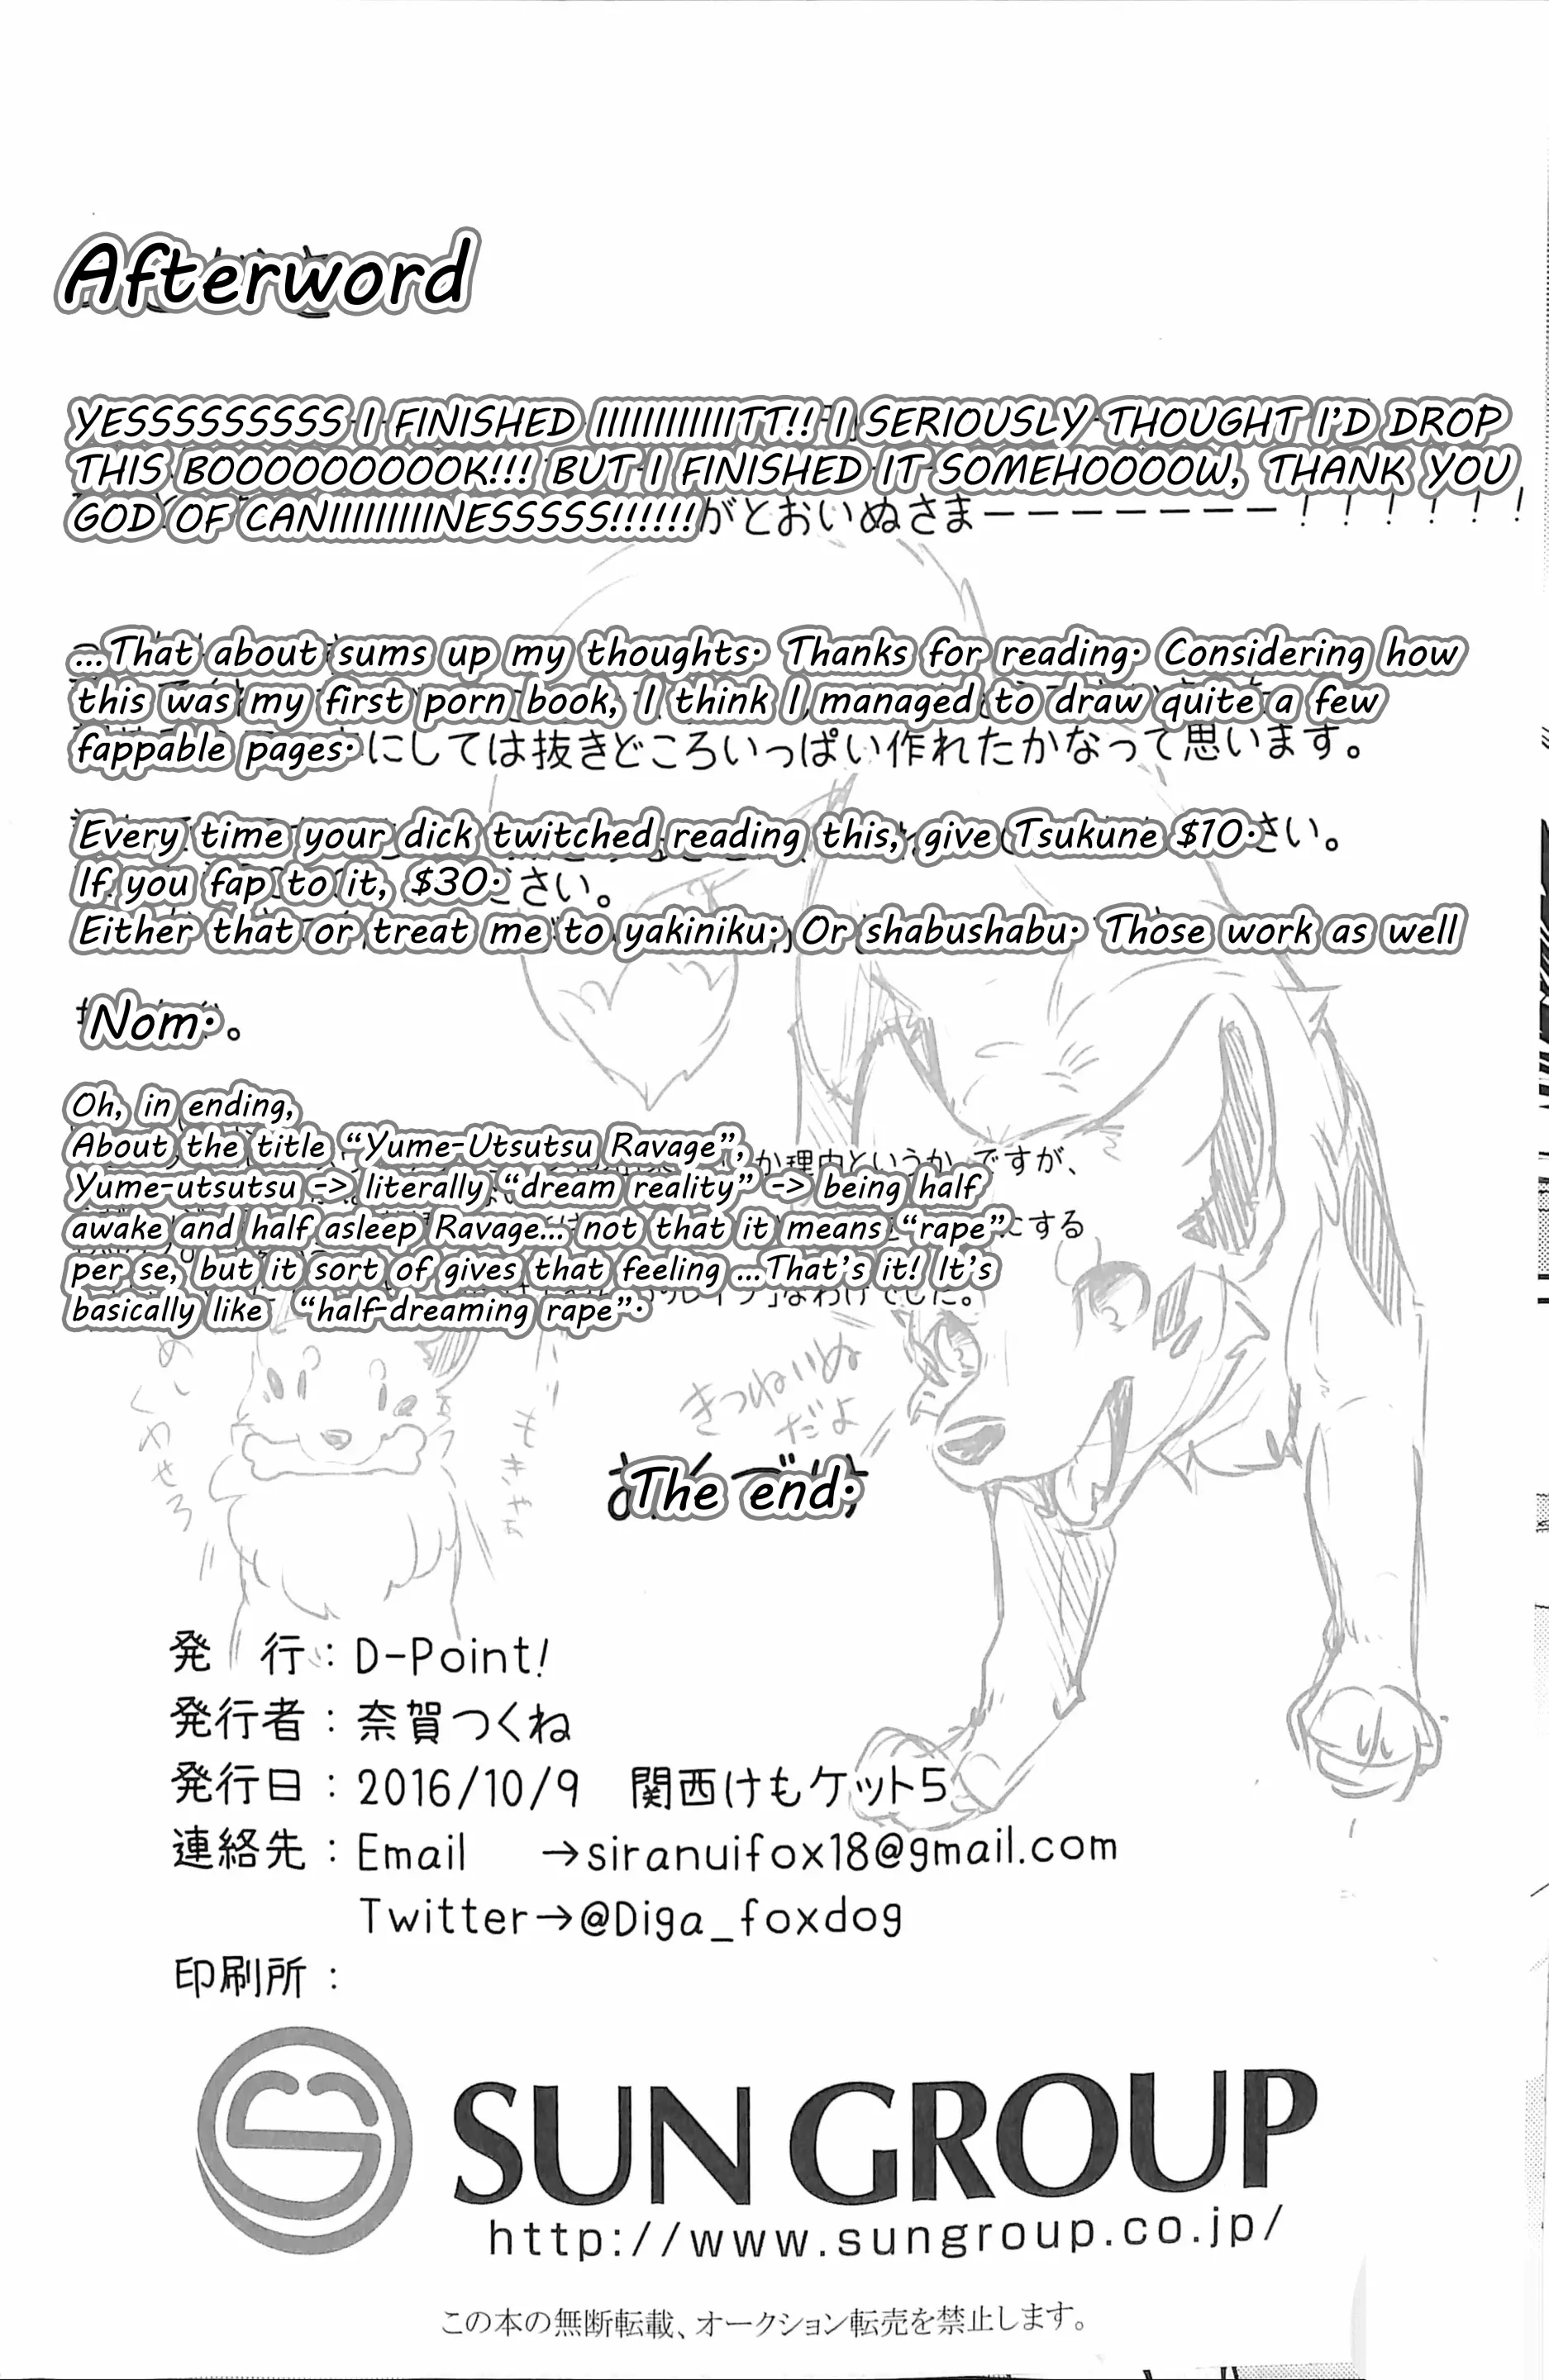 Afterword
YESSSSSSSSS I FINISHED IIIIIIIIIIIIITT!! I SERIOUSLY THOUGHT I'D DROP
THIS BOOOOOOOOOK!!! BUT I FINISHED IT SOMEHOOOOW, THANK YOU
GOD OF CANIIIIIIIIINESSSSS!!!!!! がとおいぬさまーーーーーーー！！！！！！
...That about sums up my thoughts. Thanks for reading. Considering how
this was my first porn book, I think I managed to draw quite a few
fappable pages. にしては抜きどころいっぱい作れたかなって思います。
Every time your dick twitched reading this, give Tsukune $10. さい。
If you fap to it, $30. さい。
Either that or treat me to yakiniku. Or shabushabu. Those work as well
Nom. 。
Oh, in ending,
About the title “Yume-Utsutsu Ravage”, か理由というか、ですが、
Yume-utsutsu -> literally “dream reality” -> being half
awake and half asleep Ravage... not that it means “rape” にする
per se, but it sort of gives that feeling ...That's it! It's
basically like “half-dreaming rape”. のレイプ」なわけでした。
きつねいぬ
だよ
The end.
発　行：D-Point!
発行者：奈賀つくね
発行日：2016/10/9　関西けもケット5
連絡先：Email　→siranuifox18@gmail.com
Twitter→@Diga_foxdog
印刷所：
SUN GROUP
http://www.sungroup.co.jp/
この本の無断転載、オークション転売を禁止します。